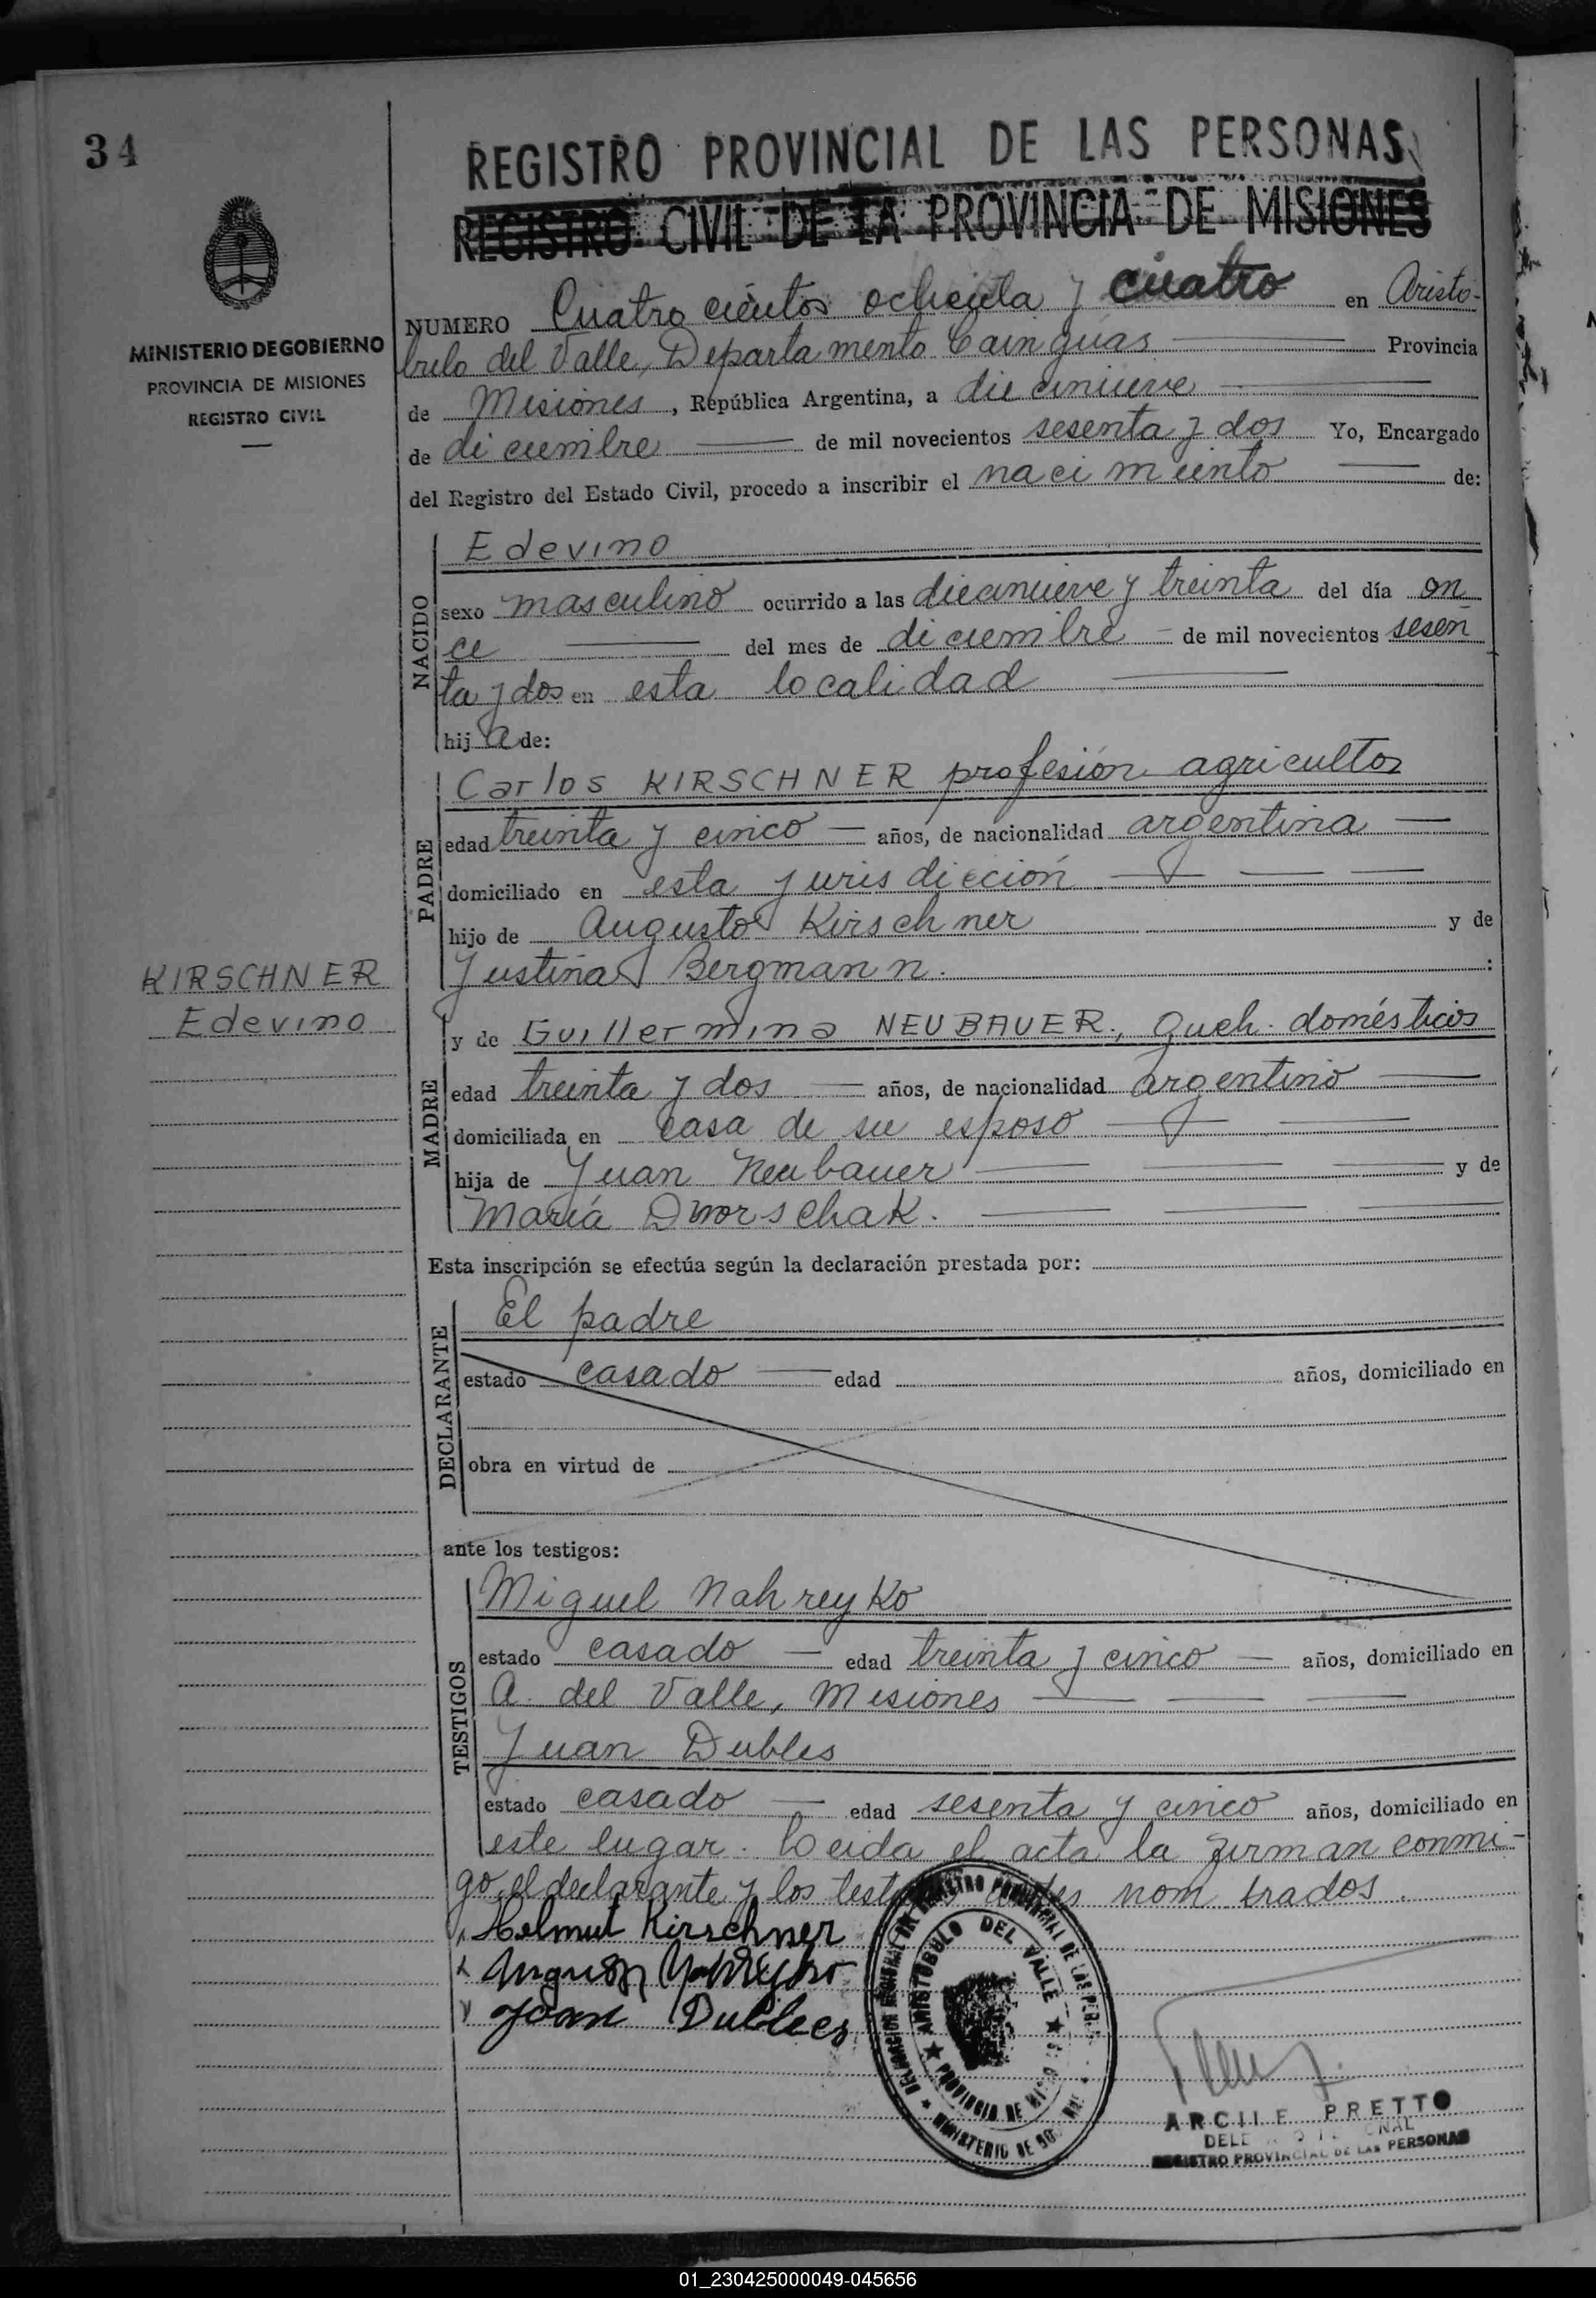 34
REGISTRO PROVINCIAL DE LAS PERSONAS
REGISTRO CIVIL DE LA PROVINCIA DE MISIONES
MINISTERIO DE GOBIERNO
PROVINCIA DE MISIONES
REGISTRO CIVIL
NUMERO Cuatro cientos ochenta y cuatro en Aristo-
bulo del Valle, Departamento Cainguas Provincia
de Misiones, República Argentina, a diecinueve
de diciembre de mil novecientos sesenta y dos Yo, Encargado
del Registro del Estado Civil, procedo a inscribir el nacimiento de:
NACIDO
Edevino
sexo masculino ocurrido a las diecinueve y treinta del día on
ce del mes de diciembre - de mil novecientos sesen
ta y dos en esta localidad
hij a de:
PADRE
Carlos KIRSCHNER profesión agricultor
edad treinta y cinco — años, de nacionalidad argentina —
domiciliado en esta jurisdicción
hijo de Augusto Kirschner y de
Justina Bergmann. :
KIRSCHNER
Edevino
MADRE
y de Guillermina NEUBAUER, Queh. domésticos
edad treinta y dos — años, de nacionalidad argentino —
domiciliada en casa de su esposo
hija de Juan Neubauer y de
María Dworschak.
Esta inscripción se efectúa según la declaración prestada por:
DECLARANTE
El padre
estado casado — edad años, domiciliado en
obra en virtud de
ante los testigos:
TESTIGOS
Miguel Nahreyko
estado casado — edad treinta y cinco — años, domiciliado en
A. del Valle, Misiones
Juan Dubles
estado casado — edad sesenta y cinco años, domiciliado en
este lugar. Leida el acta la firman conmi-
go, el declarante y los nombrados.
Helmut Kirschner
Juan Dublees
ARISTOBULO DEL VALLE
PROVINCIA DE
MINISTERIO DE
ARCILE PRETTO
REGISTRO PROVINCIAL DE LAS PERSONAS
01_230425000049-045656